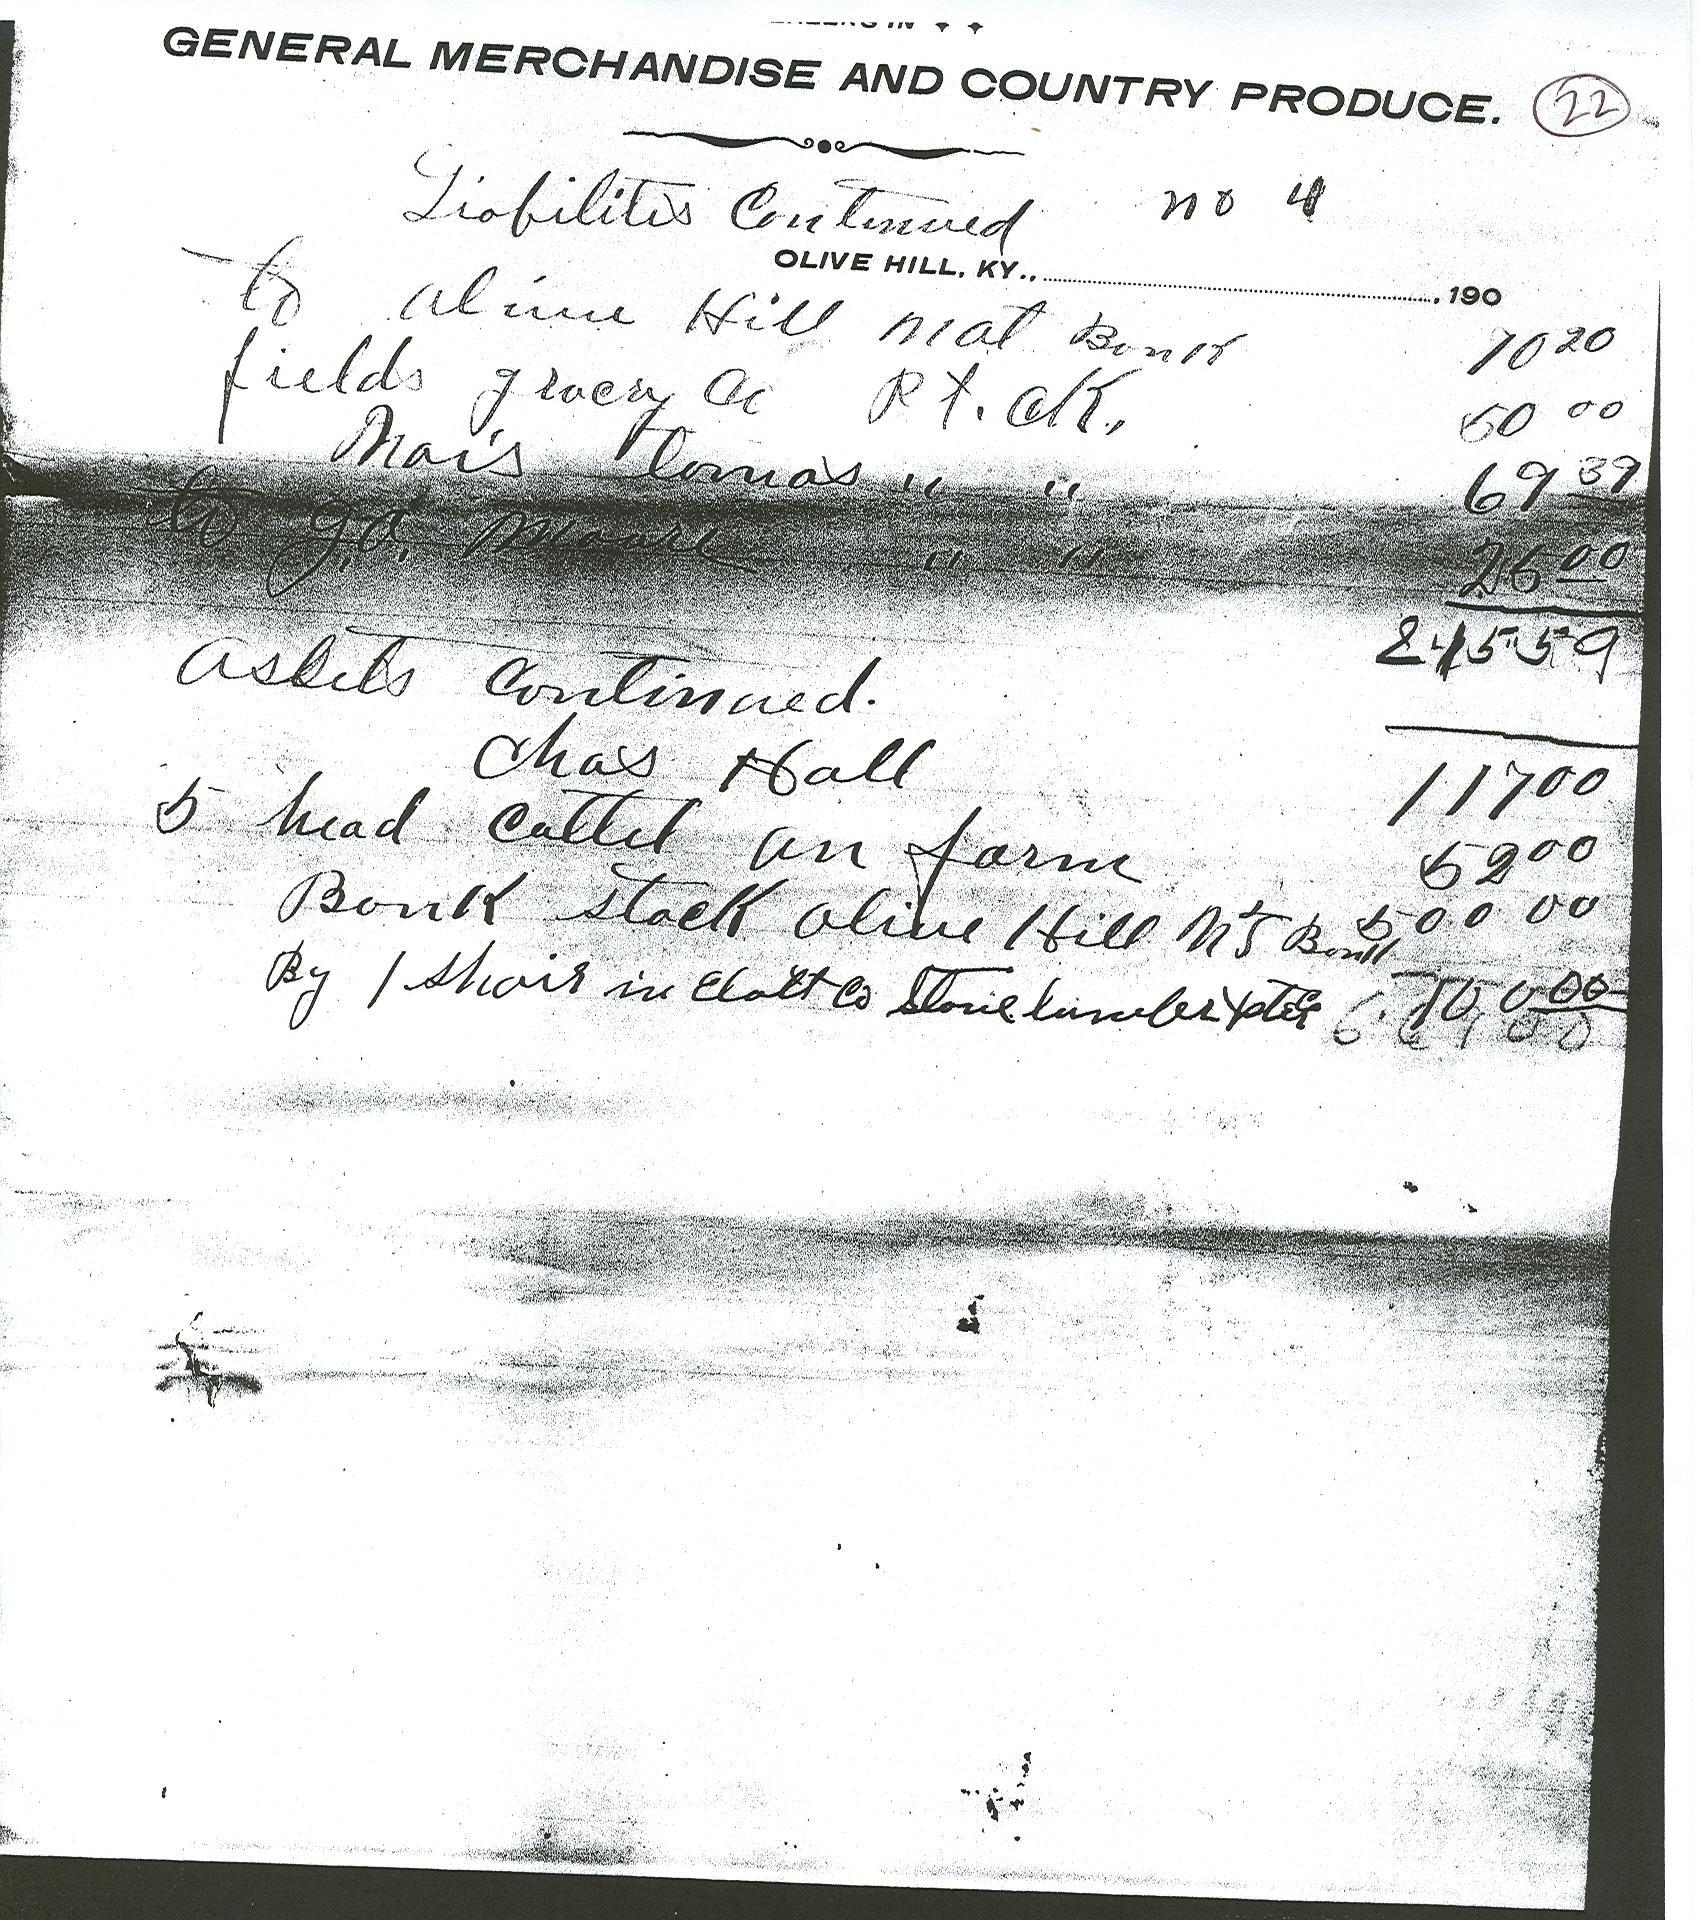 GENERAL MERCHANDISE AND COUNTRY PRODUCE. 22
Liabilitis Continued no 4
OLIVE HILL, KY., 190
To Olive Hill Nat Bank 70 20
fields grocery Co P t. ck. 50 00
" " 69 39
to J.O. Moore " " 26 00
245 59
Assets Continued.
Chas Hall 117 00
5 head Cattel on farm 52 00
Bank stock Olive Hill Bank 500 00
By 1 shair in Co Stone lumber